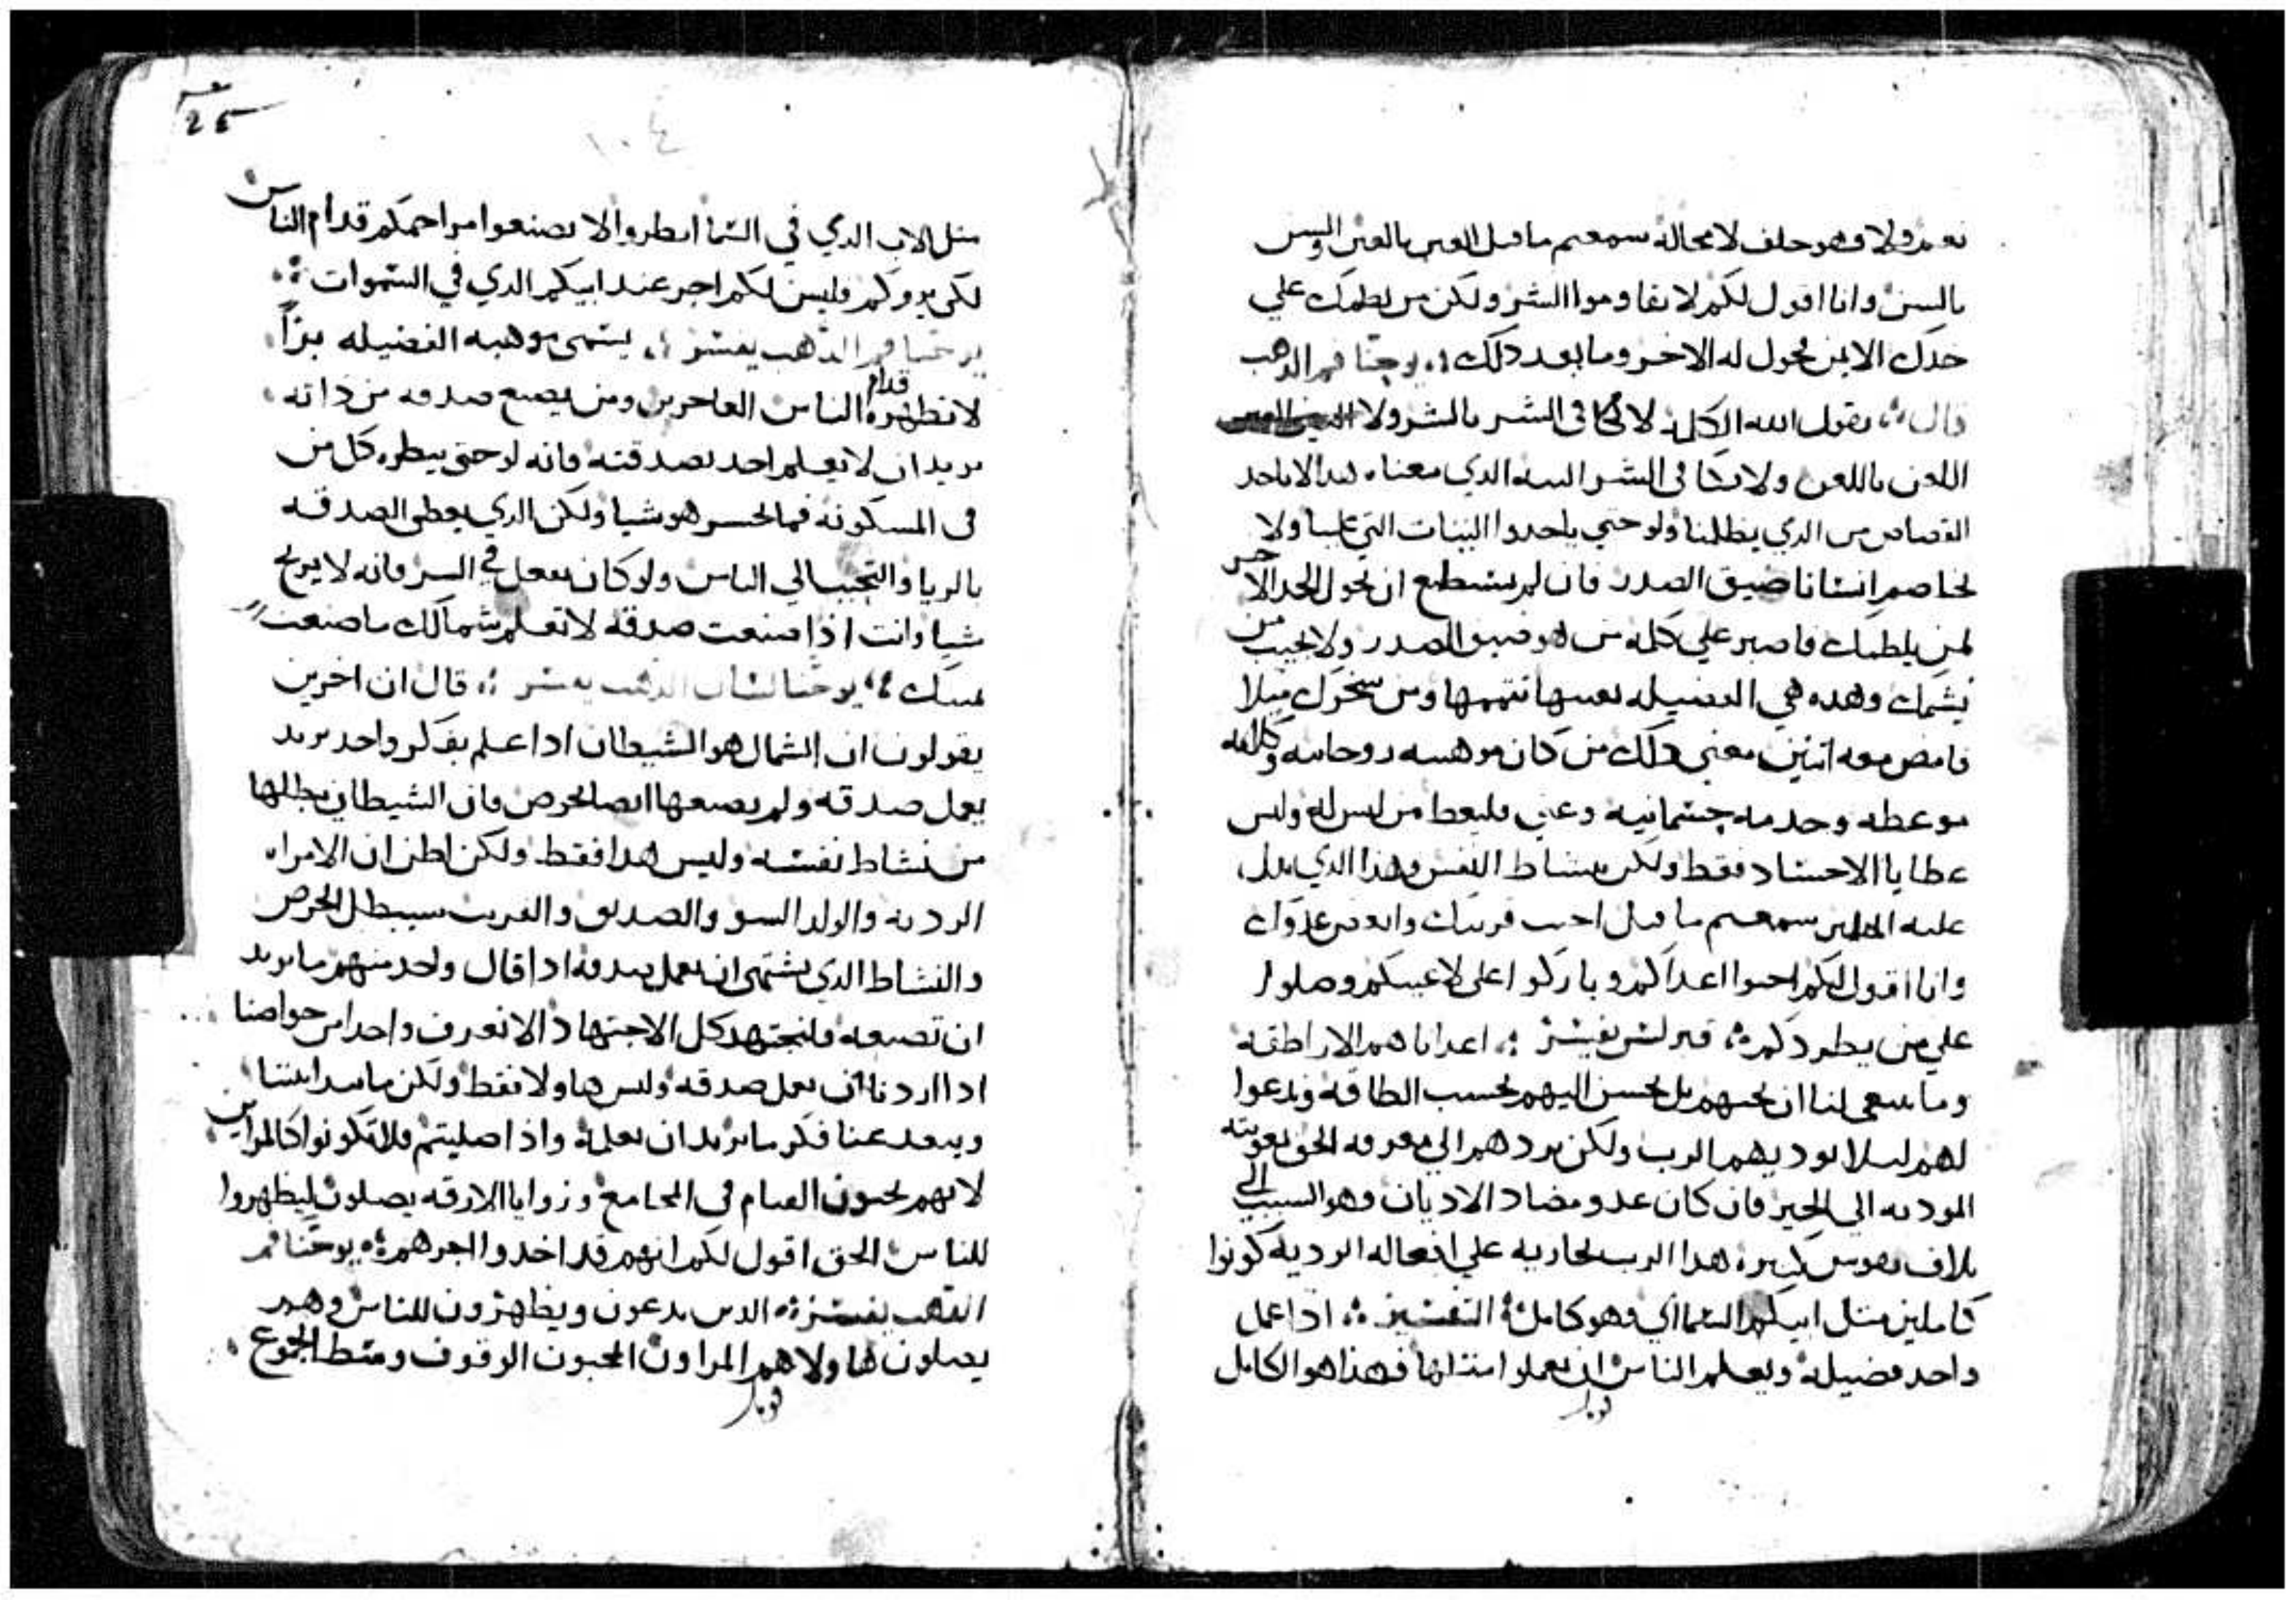 نعم ولا فهو حلف لا محاله سمعتم ما قيل العين بالعين والسن
بالسن وانا اقول لكم لا تقاوموا الشر ولكن من لطمك علي
خدك الايمن فحول له الاخر وما بعد ذلك يوحنا فم الدهب
قال يقول الله الكلمة لا تكافي الشر بالشر ولا
اللعن باللعن ولا تكافي الشر الدي معناه لا ياخد
القصاص من الدي يظلمنا ولو حتي ياخدوا التياب التي علينا ولا
نخاصم انسانا ضيق الصدر فان لم نستطع ان نحول الخد الاخر
لمن يلطمك فاصبر علي كلمة من هو ضيق الصدر ولا تجيب من
يشتمك وهده هي الفضيله بعينها تتممها ومن سخرك ميلا
فامض معه اتنين معني دلك من كان موهبته روحانيه وكلامه
موعظه وخدمه جسمانيه وغني فليعط من ليس له وليس
عطايا الاجساد فقط ولكن بنشاط النفس وهذا الذي يدل
عليه سمعتم ما قيل احب قريبك وابغض عدوك
وانا اقول لكم احبوا اعداكم وباركوا علي لاعنيكم وصلوا
علي من يطردكم كيرلس يفسر اعدانا هم الاراطقه
وما ينبغي لنا ان نحبهم بل نحسن اليهم بحسب الطاقه وندعوا
لهم ليلا يوديهم الرب ولكن يردهم الي معرفه الحق بقوته
الموديه الي الخير فان كان عدو مضاد الاديان وهو السبب الي
تلاف نفوس كثيره هدا الرب يجازيه علي افعاله الرديه كونوا
كاملين متل ابيكم السمااي فهو كامل التفسير اذا عمل
واحد فضيله ويعلم الناس ان يعملوا امتالها فهذا هو الكامل
25
١٠٤
متل الاب الدي في السما انظروا الا تصنعوا مراحمكم قدام الناس
لكي يروكم فليس لكم اجر عند ابيكم الدي في السموات
يوحنا فم الدهب يفسر يسمي موهبه الفضيله برا
لا تظهره قدام الناس الفاخرين ومن يصنع صدقه من ذاته
يريد ان لا يعلم احد بصدقته فانه لو حتي ينظره كل من
في المسكونه فما يخسر هو شيا ولكن الدي يعطي الصدقه
بالريا والتحبب الي الناس ولو كان يفعل في السر فانه لا يربح
شيا وانت اذا صنعت صدقه لا تعلم شمالك ما صنعت
يمينك يوحنا لسان الدهب يفسر قال ان اخرين
يقولون ان الشمال هو الشيطان ادا علم بفكر واحد يريد
يعمل صدقه ولم يصنعها ايضا بحرص فان الشيطان يبطلها
من نشاط نفسه وليس هدا فقط ولكن اظن ان الامراه
الرديه والولد السو والصديق والقريب سيبطل الحرص
والنشاط الدي يشتهي ان يعمل صدقه ادا قال واحد منهم ما يريد
ان تصنعه فلنجتهد كل الاجتهاد الا نعرف واحدا من خواصنا
ادا اردنا ان نعمل صدقه وليس هاولا فقط ولكن
ويبعد عنا فكر ما نريد ان نعمله واذا صليتم فلا تكونوا كالمرايين
لانهم يحبون القيام في المجامع وزوايا الازقه يصلون ليظهروا
للناس الحق اقول لكم انهم قد اخدوا اجرهم يوحنا فم
الدهب يفسر الدين يدعون ويظهرون للناس وهم
يصلون هاولا هم المراون المحبون الوقوف وسط الجموع